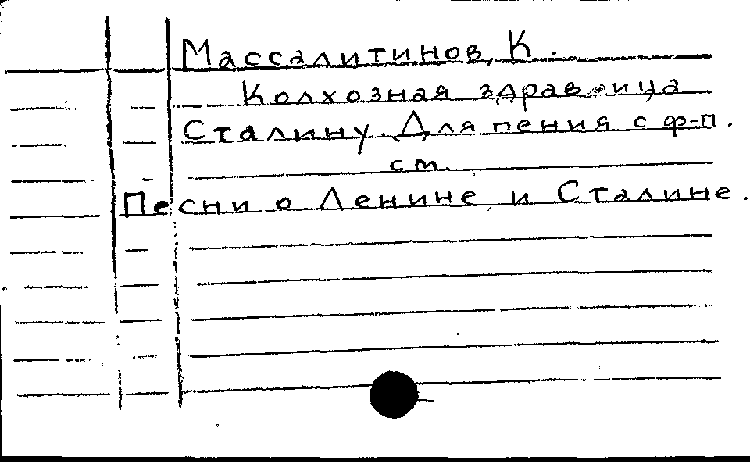 Массалитинов, К.
Колхозная здравица
Сталину. Для пения с ф-п.
см.
Песни о Ленине и Сталине.